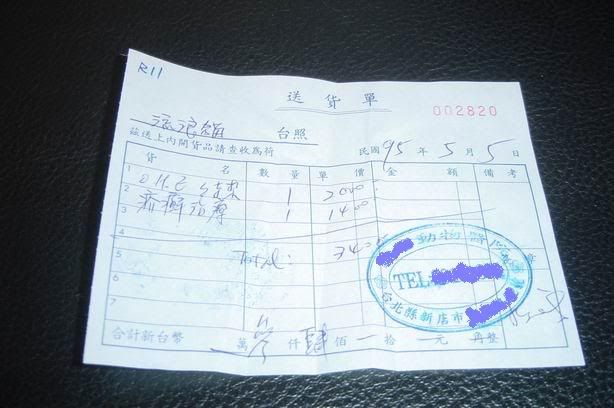 R11
送貨單
002820
流浪貓 台照
茲送上內開貨品請查收為荷
民國 95 年 5 月 5 日
貨 名 數 量 單 價 金 額 備 考
1 O.H.E 1 2000
2
3 1 1400
4
5 Total: 3400
6
7
動物醫
TEL
台北縣新店市
章
合計新台幣 萬 仟 肆 佰 拾 元 角整